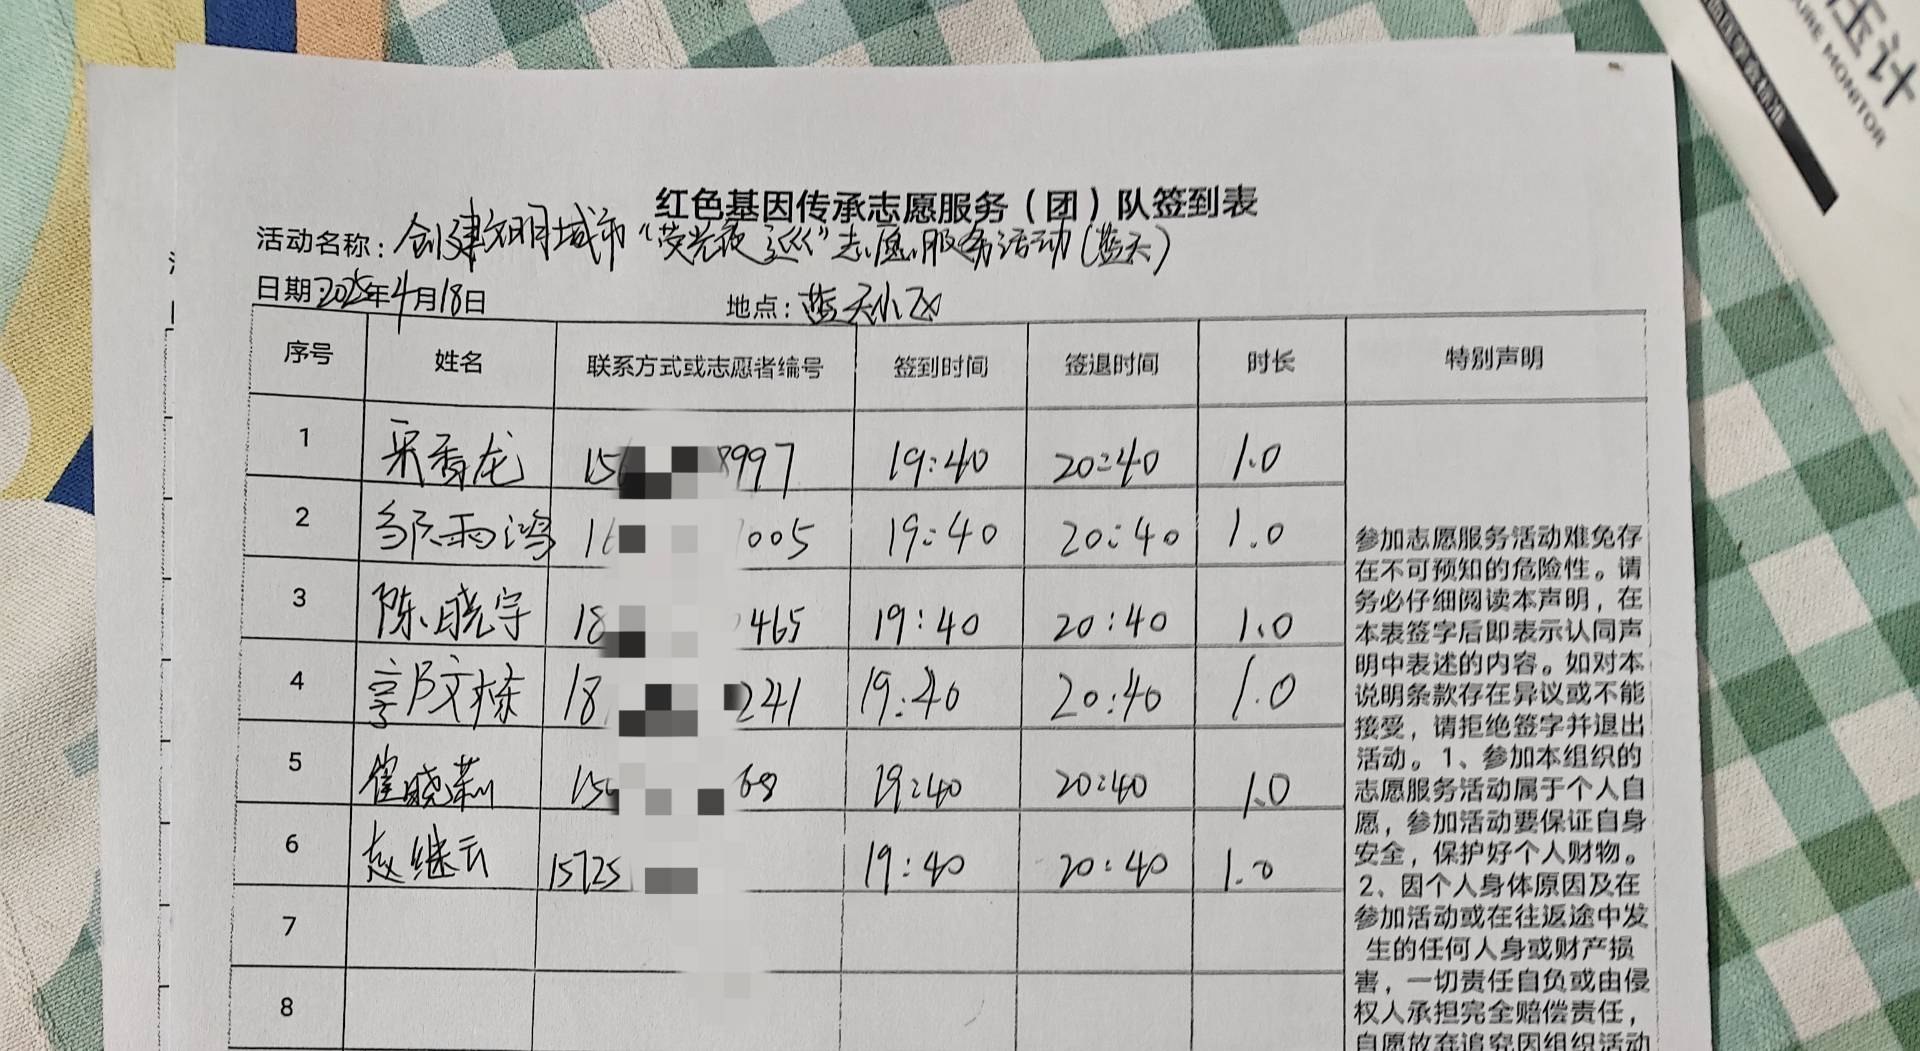 压计
URE MONITOR
红色基因传承志愿服务（团）队签到表
活动名称：创建文明城市“荧光夜巡”志愿服务活动（蓝天）
日期：2025年4月18日 地点：蓝天小区
序号 姓名 联系方式或志愿者编号 签到时间 签退时间 时长 特别声明
1 香龙 15 8997 19:40 20:40 1.0
2 邹雨鸿 16 1005 19:40 20:40 1.0
3 陈晓宇 18 465 19:40 20:40 1.0
4 郭文栋 18 241 19:40 20:40 1.0
5 崔晓莉 150 68 19:40 20:40 1.0
6 赵继云 15725 19:40 20:40 1.0
7
8
参加志愿服务活动难免存
在不可预知的危险性。请
务必仔细阅读本声明，在
本表签字后即表示认同声
明中表述的内容。如对本
说明条款存在异议或不能
接受，请拒绝签字并退出
活动。1、参加本组织的
志愿服务活动属于个人自
愿，参加活动要保证自身
安全，保护好个人财物。
2、因个人身体原因及在
参加活动或在往返途中发
生的任何人身或财产损
害，一切责任自负或由侵
权人承担完全赔偿责任，
自愿放弃追究因组织活动